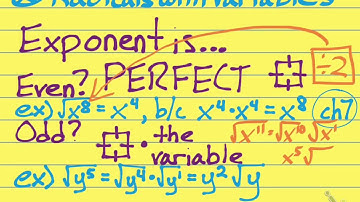 ② Radicals with Variables
Exponent is...
Even? PERFECT ÷2
ex) √x⁸ = x⁴, b/c x⁴·x⁴ = x⁸ ch7
Odd? · the variable
√x¹¹ = √x¹⁰ √x¹
x⁵√
ex) √y⁵ = √y⁴·√y¹ = y²√y